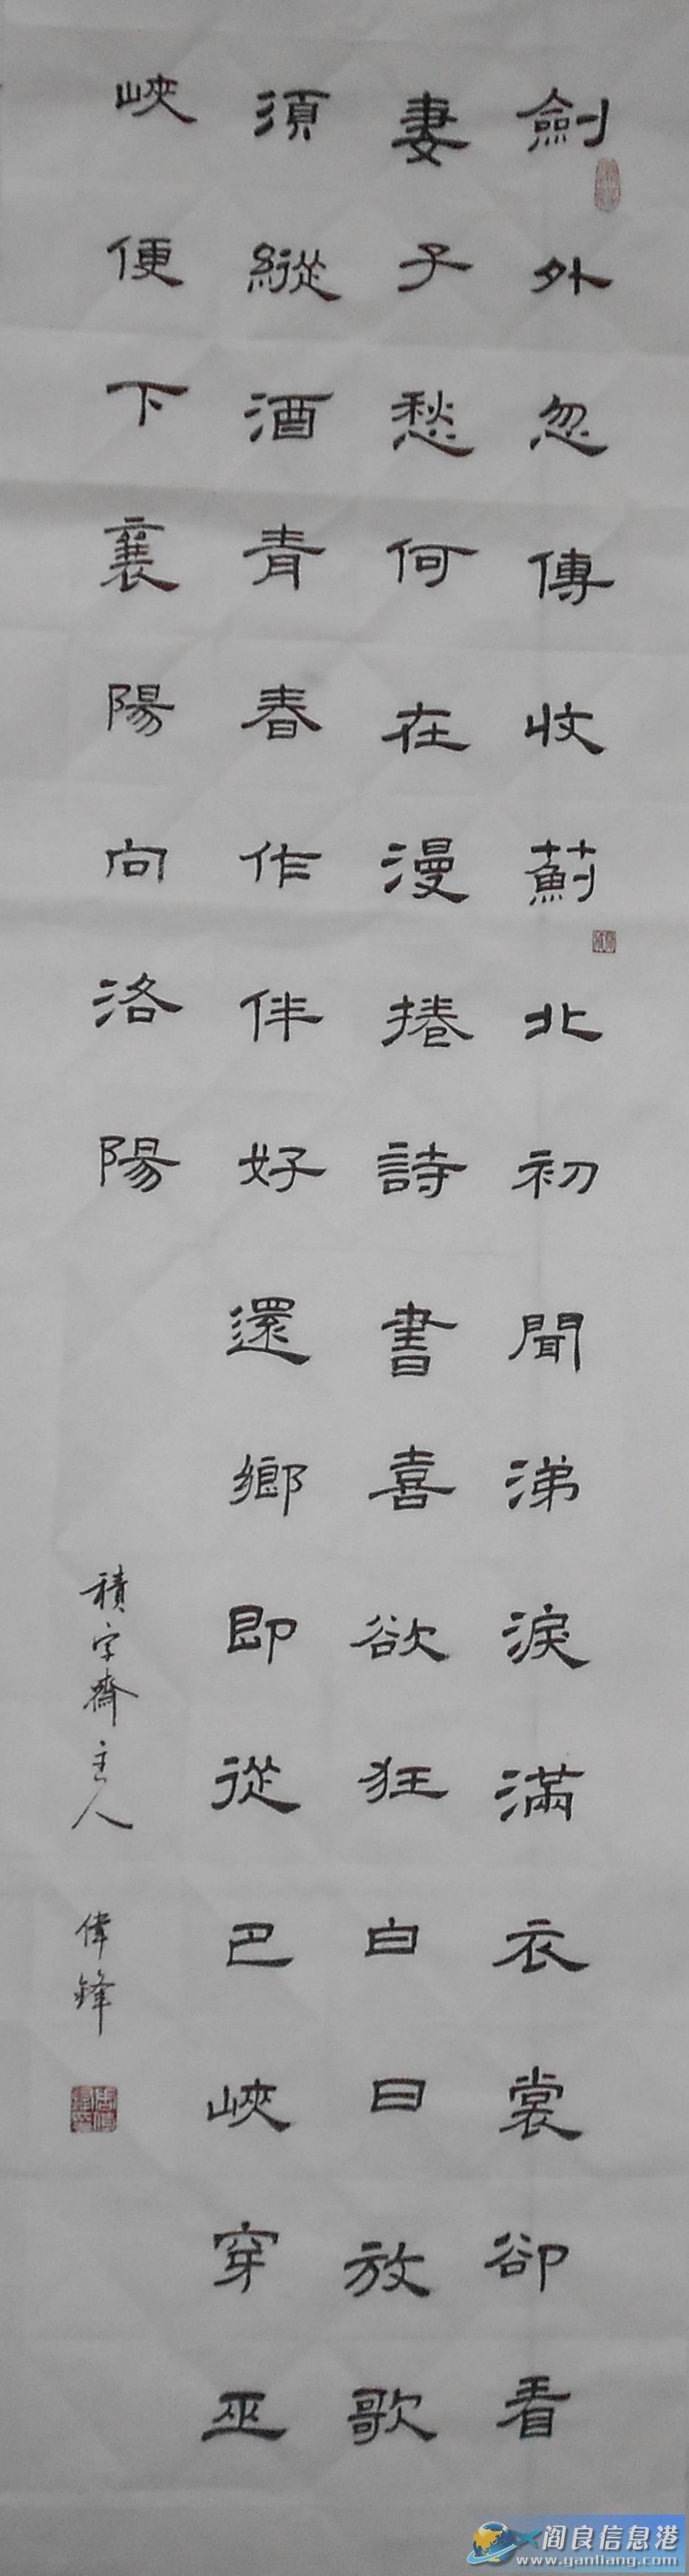 劍外忽傳收薊北初聞涕淚滿衣裳卻看
妻子愁何在漫捲詩書喜欲狂白日放歌
須縱酒青春作伴好還鄉即從巴峽穿巫
峽便下襄陽向洛陽
積字齋主人 偉鋒
阎良信息港
www.yanliang.com